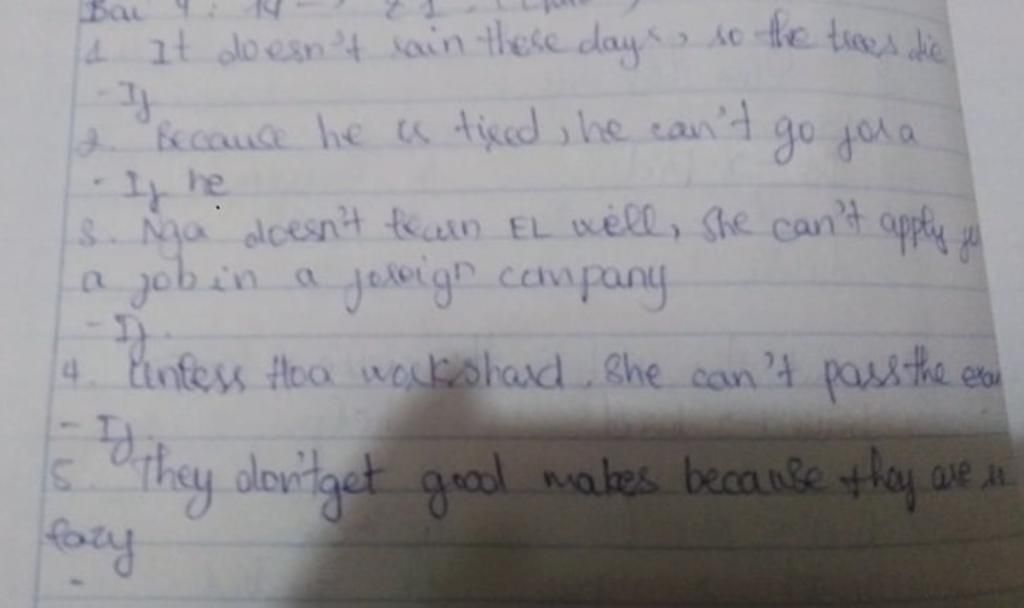 Bai 4:
1. It doesn't rain these days, so the trees die
- If
2. Because he is tired, he can't go for a
- If he
3. Nga doesn't learn EL well, she can't apply
a job in a foreign company
- If
4. Unless Hoa works hard. She can't pass the exam
- If
5. They don't get good makes because they are
lazy
-